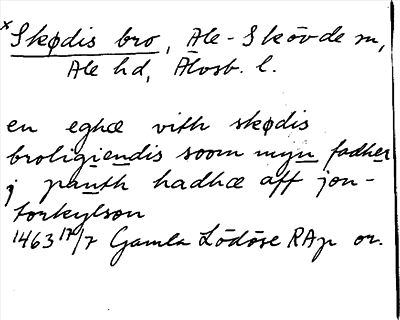 ×Skødis bro, Ale-Skövde sn,
Ale hd, Älvsb. l.
en eghæ vith skødis
broligiendis soom myn fadher
j panth hadhæ aff jon-
torkylson
1463 17/7 Gamla Lödöse RAp or.